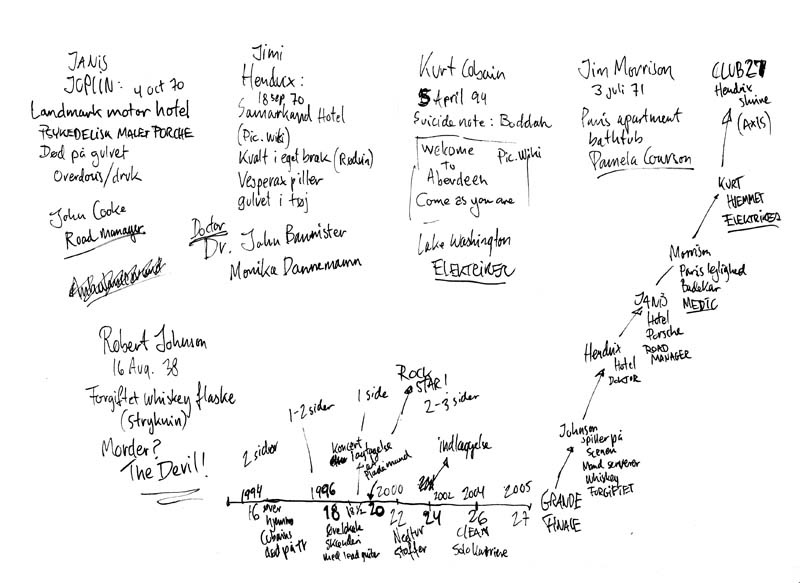 JANIS
JOPLIN: 4 oct 70
Landmark motor hotel
PSYKEDELISK MALET PORCHE
Død på gulvet
Overdosis/druk
John Cooke
Road manager
Jimi
Hendrix:
18 sep. 70
Samarkand Hotel
(Pic. wiki)
Kvalt i eget bræk (Rødvin)
Vesperax piller
gulvet i tøj
Doctor
Dr. John Bannister
Monika Dannemann
Kurt Cobain
5 April 94
Suicide note: Boddah
Welcome
To
Aberdeen
Come as you are
Pic. Wiki
Lake Washington
ELEKTRIKER
Jim Morrison
3 juli 71
Paris apartment
bathtub
Pamela Courson
CLUB 27
Hendrix
shrine
(AXIS)
KURT
HJEMMET
ELEKTRIKER
Morrison
Paris lejlighed
Badekar
MEDIC
JANIS
Hotel
Porsche
ROAD
MANAGER
Hendrix
Hotel
DOKTOR
Johnson
spiller på
Scenen
Mand serverer
Whiskey
FORGIFTET
GRANDE
FINALE
Robert Johnson
16 Aug. 38
Forgiftet whiskey flaske
(stryknin)
Morder?
The Devil!
2 sider
1-2 sider
1 side
Rock
STAR!
2-3 sider
koncert
Plademund
indlæggelse
1994 1996 2000 2002 2004 2005
16 18 18 1/2 20 22 24 26 27
over
hjemme
Cobains
død på tv
med
Negtur
stoffer
CLEAN
Solo karriere